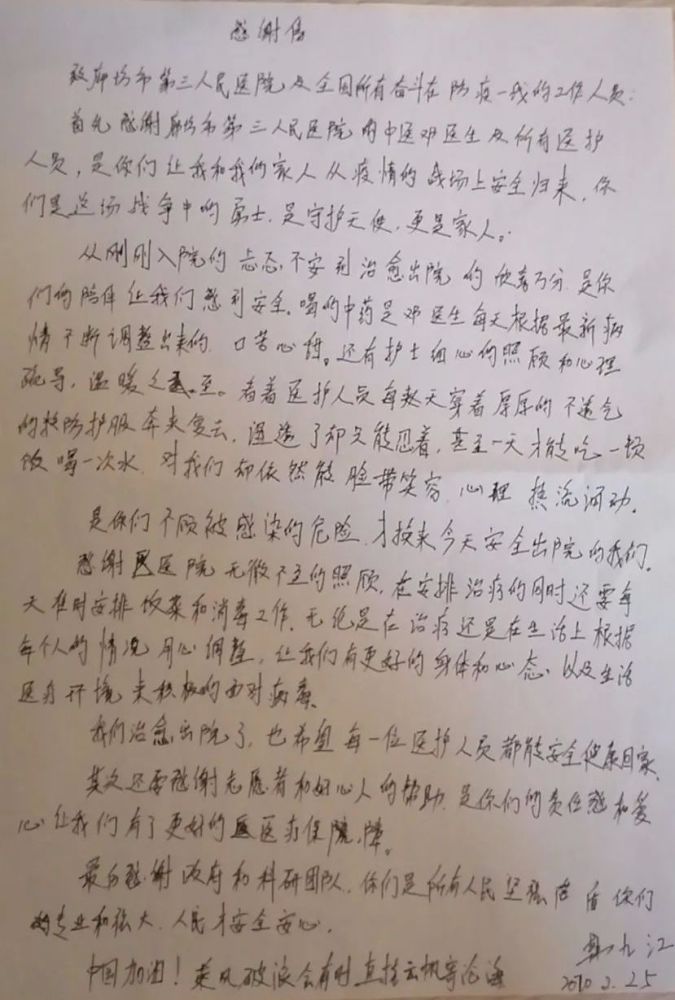 感谢信
致廊坊市第三人民医院及全国所有奋斗在防疫一线的工作人员:
首先感谢廊坊市第三人民医院的中医邓医生及所有医护
人员,是你们让我和我的家人从疫情的战场上安全归来,你
们是这场战争中的勇士,是守护天使,更是家人。
从刚刚入院的忐忑不安到治愈出院的欣喜万分,是你
们的陪伴让我们感到安全,喝的中药是邓医生每天根据最新病
情不断调整出来的,口苦心甜。还有护士细心的照顾和心理
疏导,温暖之至。看着医护人员每天穿着厚厚的不透气
的防护服奔来复去,湿透了却只能忍着,甚至一天才能吃一顿
饭喝一次水,对我们却依然能脸带笑容,心理热流涌动。
是你们不顾被感染的危险,才换来今天安全出院的我们。
感谢医院无微不至的照顾,在安排治疗的同时还要每
天准时安排饭菜和消毒工作,无论是在治疗还是在生活上根据
每个人的情况用心调整,让我们有更好的身体和心态,以及生活
医疗环境来积极的面对病毒。
我们治愈出院了,也希望每一位医护人员都能安全健康回家。
其次还要感谢志愿者和好心人的帮助,是你们的责任感和爱
心让我们有了更好的医疗保障。
最后感谢政府和科研团队,你们是所有人民坚强后盾你们
的专业和强大,人民才安全安心。
中国加油!乘风破浪会有时直挂云帆济沧海
九江
2020.2.25